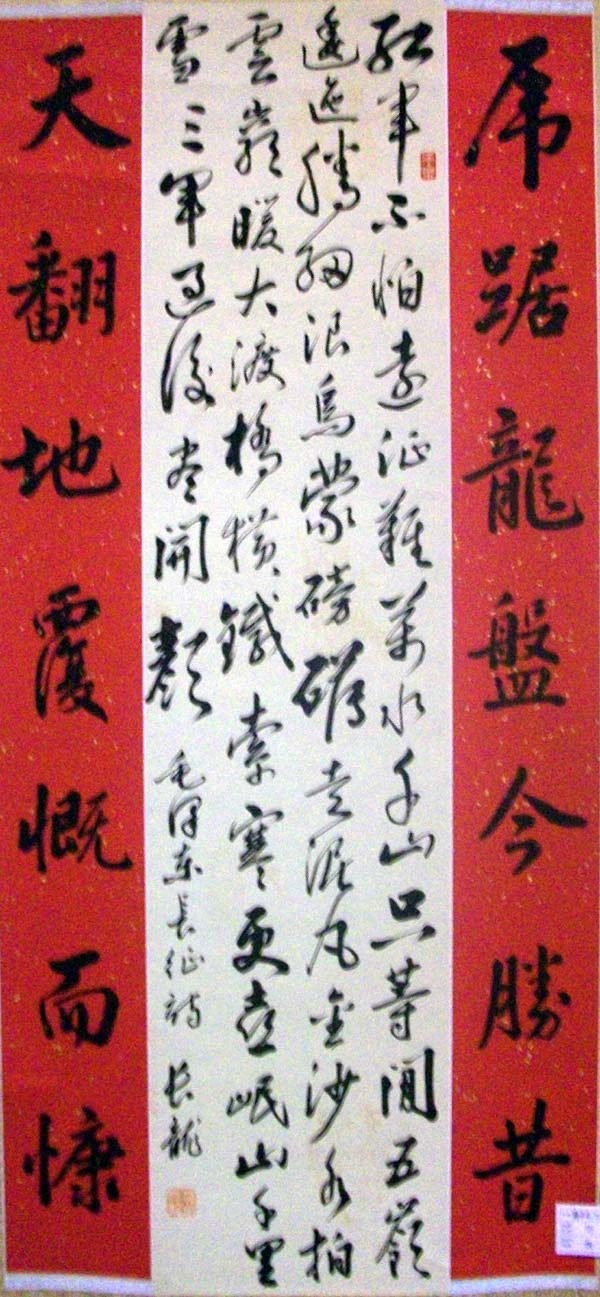 虎踞龍盤今勝昔
紅軍不怕遠征難萬水千山只等閒五嶺
逶迤騰細浪烏蒙磅礴走泥丸金沙水拍
雲崖暖大渡橋橫鐵索寒更喜岷山千里
雪三軍過後盡開顏 毛澤東長征詩 長龍
天翻地覆慨而慷